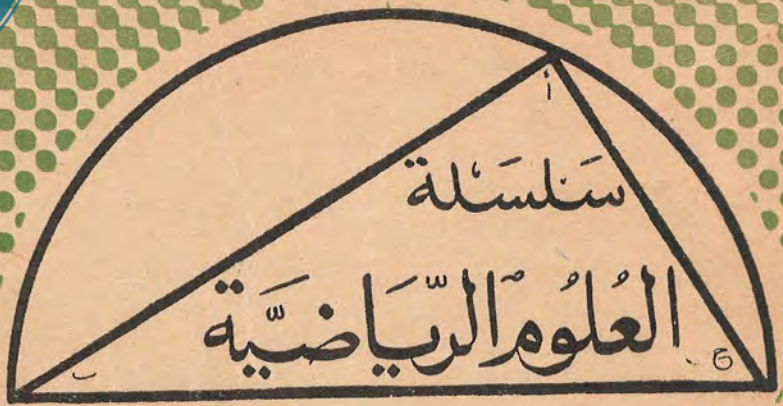 أ
سَلسَلة
العُلُوم الرّيَاضيَّة
ب ج